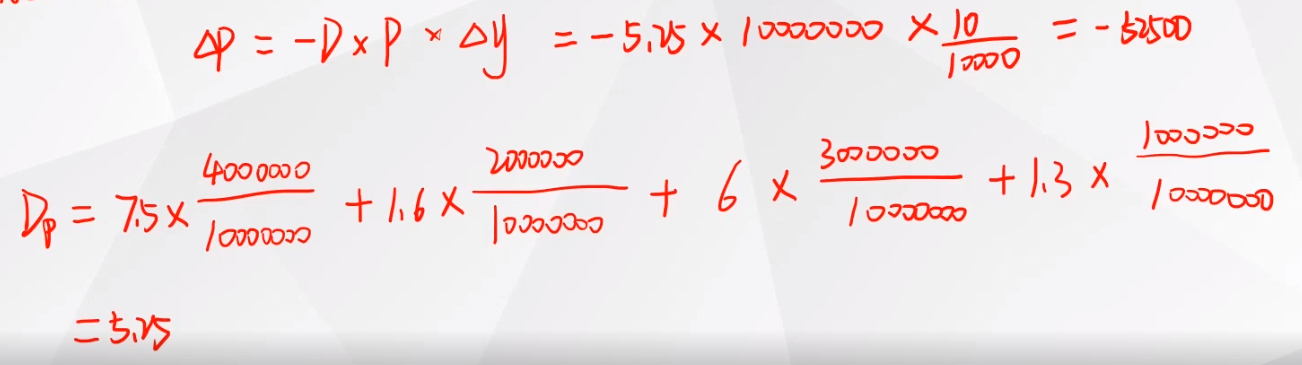 ΔP = -D × P × Δy = -5.25 × 10000000 × 10/10000 = -52500
Dp = 7.5 × 4000000/10000000 + 1.6 × 2000000/10000000 + 6 × 3000000/10000000 + 1.3 × 1000000/10000000
= 5.25